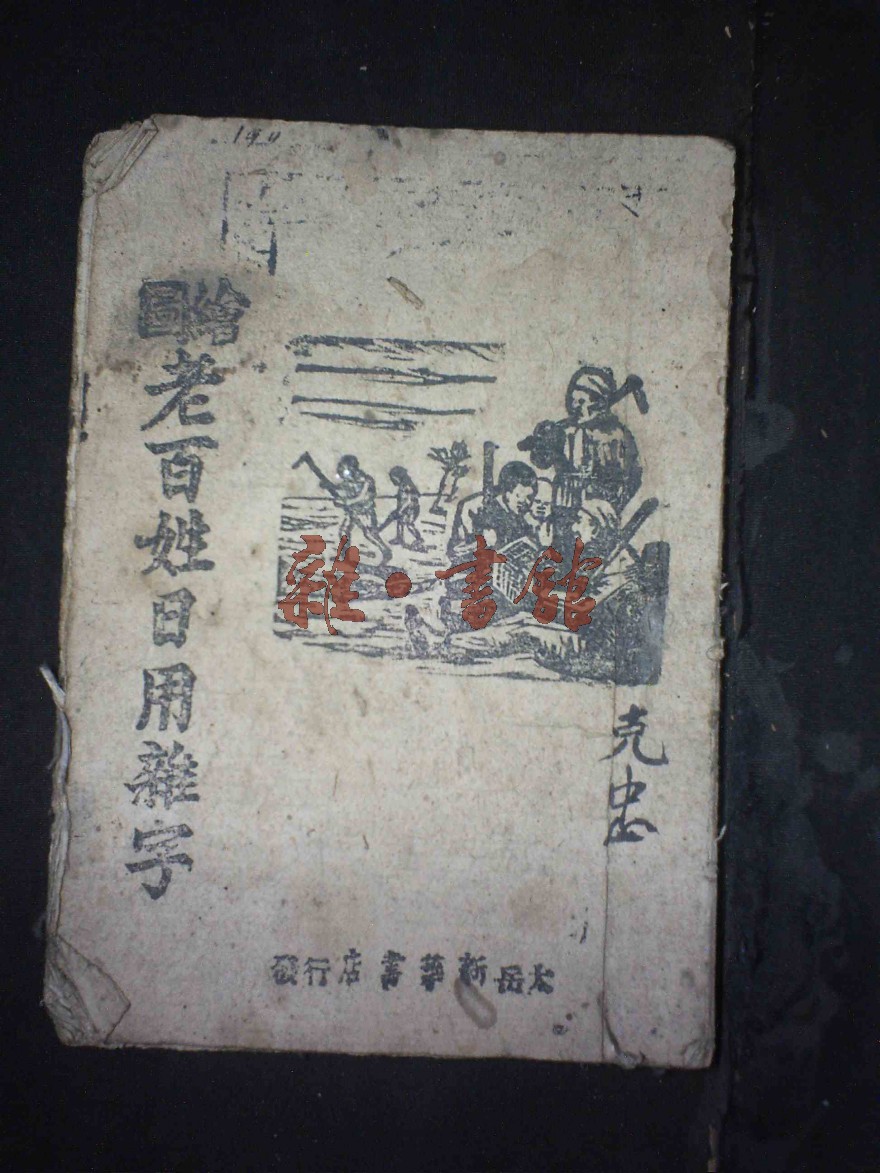 繪圖
老百姓日用雜字
雜·書舘
克忠
太岳新華書店行發